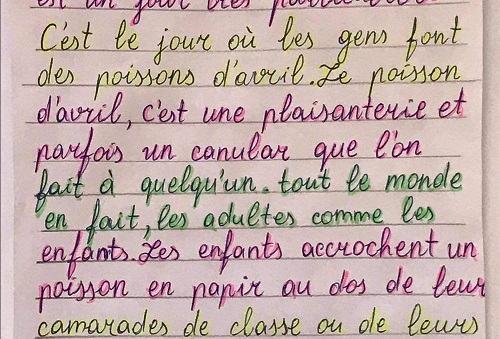 est un jour très
C'est le jour où les gens font
des poissons d'avril. Le poisson
d'avril, c'est une plaisanterie et
parfois un canular que l'on
fait à quelqu'un. tout le monde
en fait, les adultes comme les
enfants. Les enfants accrochent un
poisson en papir au dos de leur
camarades de classe ou de leurs